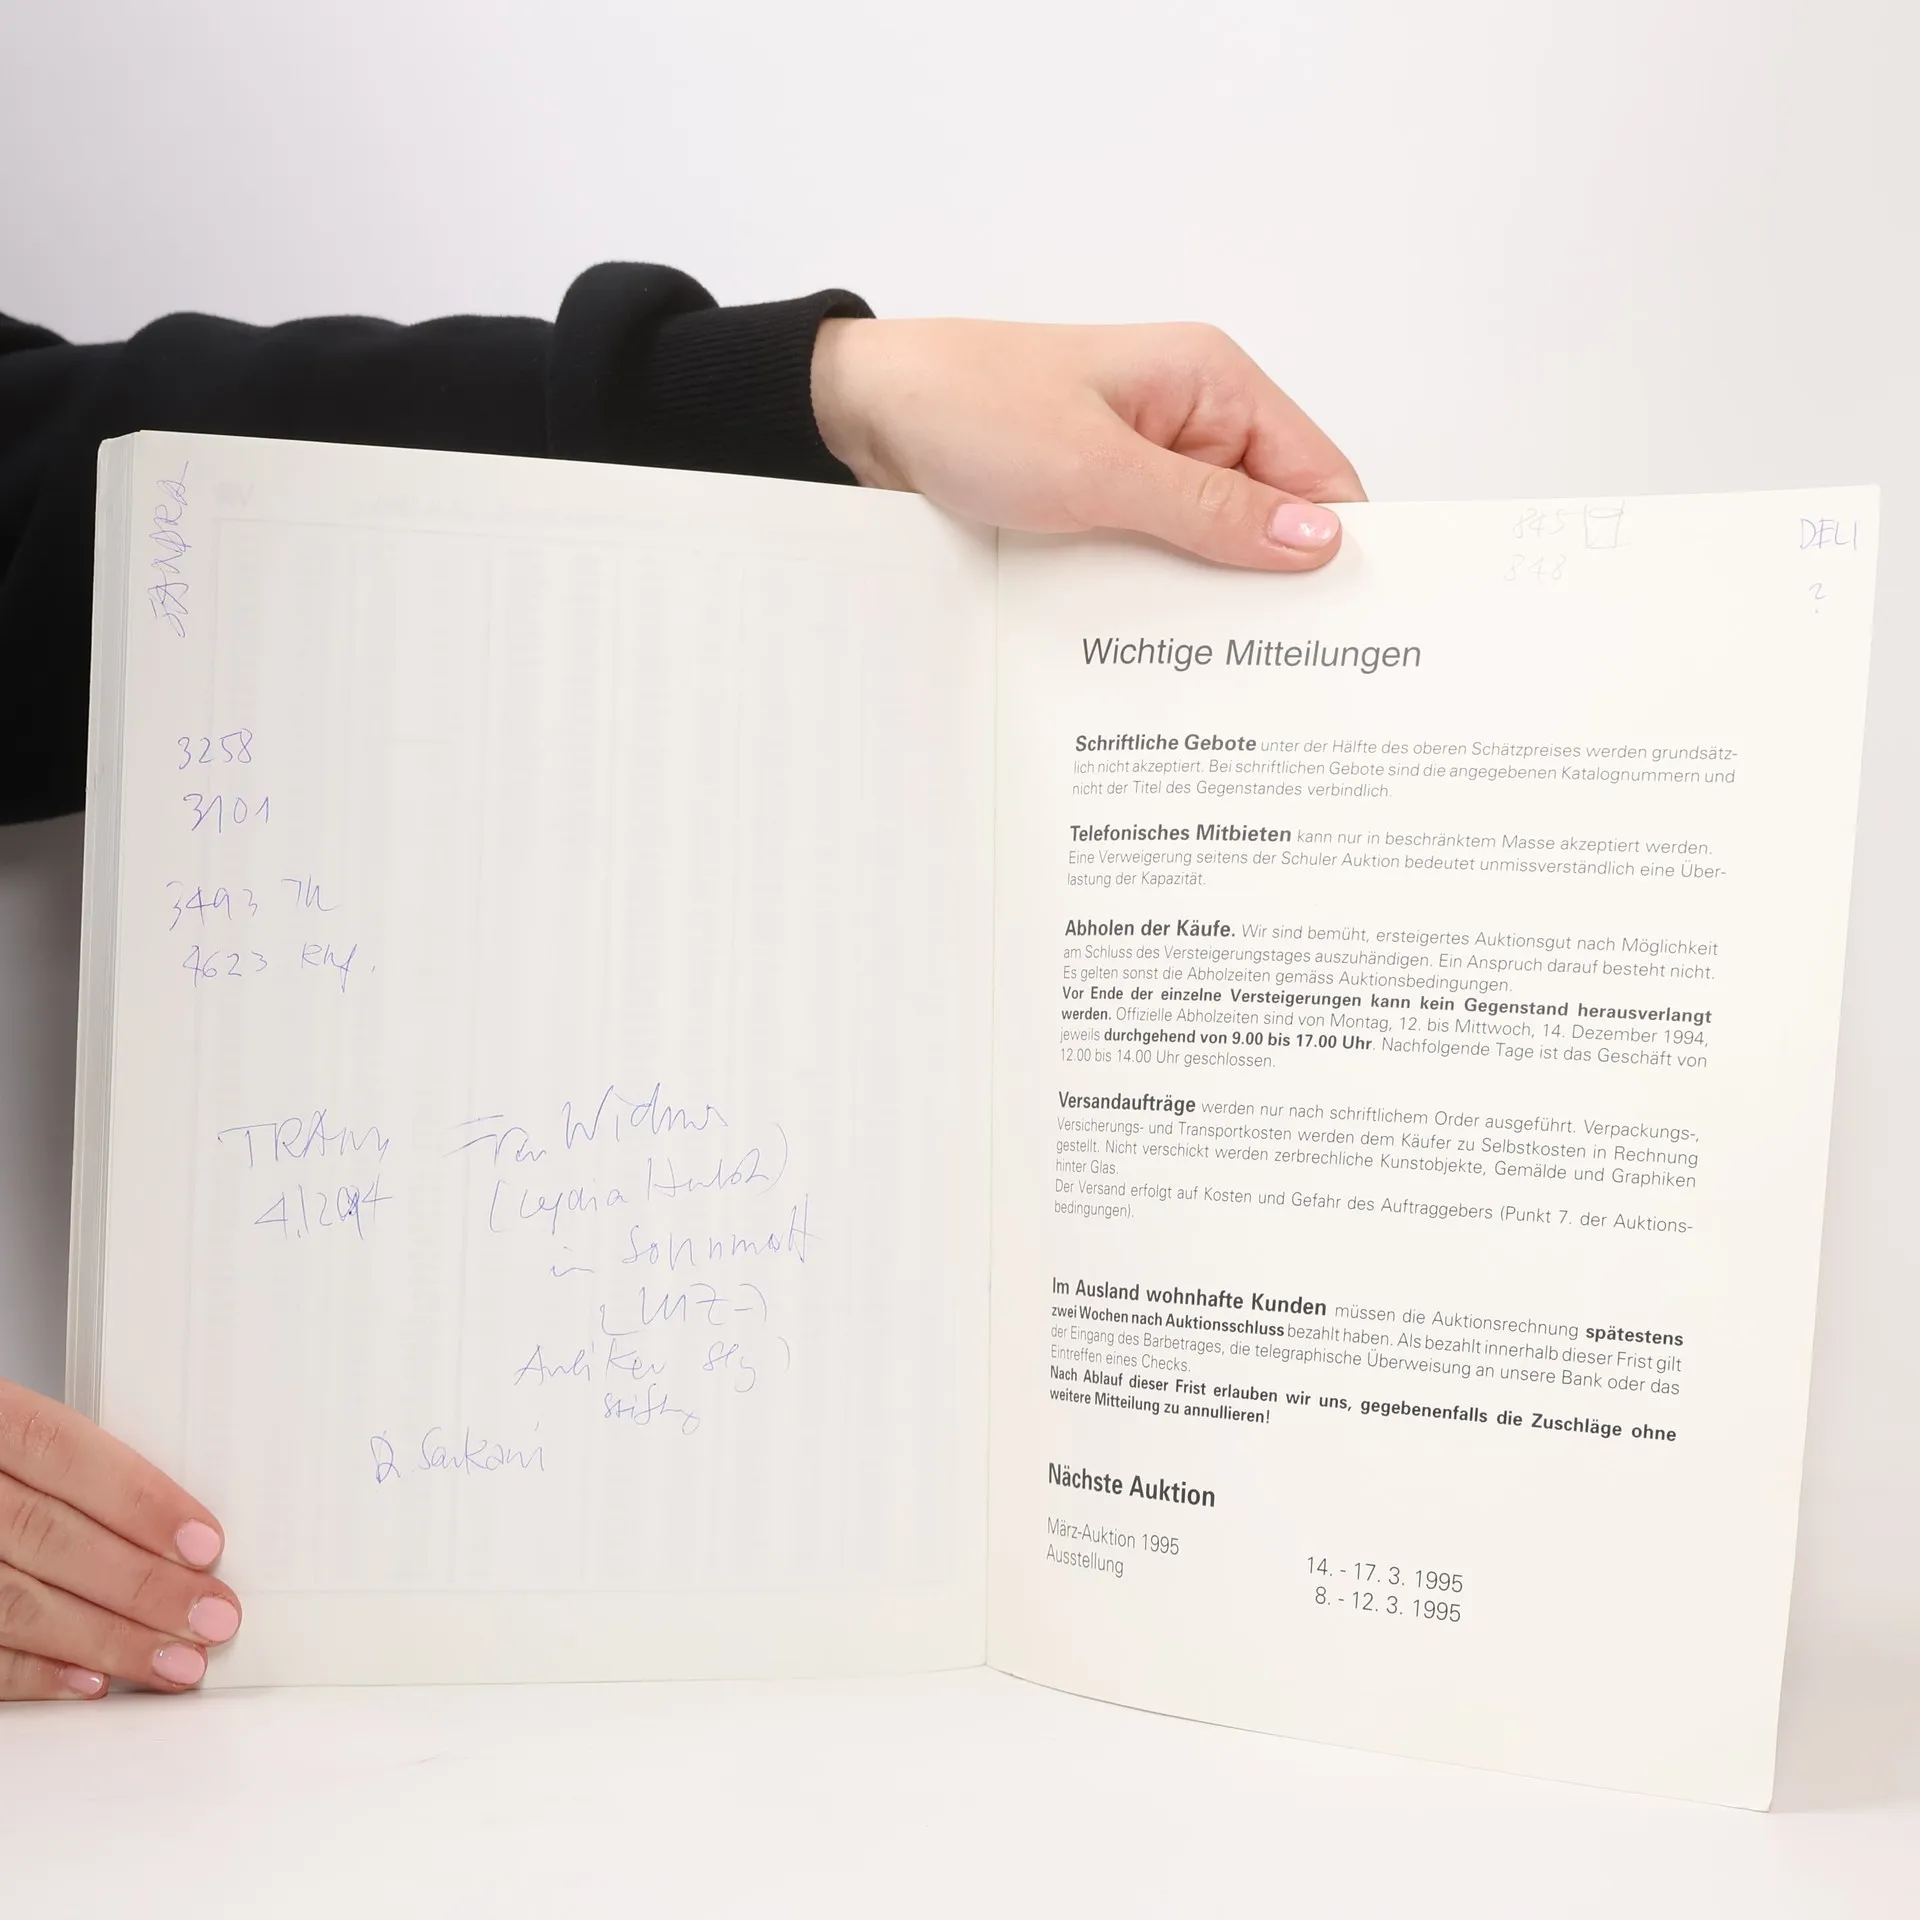 3258
3101
3493
4623
in Sonnmatt
845
848
DELI
?
Wichtige Mitteilungen
Schriftliche Gebote unter der Hälfte des oberen Schätzpreises werden grundsätz-
lich nicht akzeptiert. Bei schriftlichen Gebote sind die angegebenen Katalognummern und
nicht der Titel des Gegenstandes verbindlich.
Telefonisches Mitbieten kann nur in beschränktem Masse akzeptiert werden.
Eine Verweigerung seitens der Schuler Auktion bedeutet unmissverständlich eine Über-
lastung der Kapazität.
Abholen der Käufe. Wir sind bemüht, ersteigertes Auktionsgut nach Möglichkeit
am Schluss des Versteigerungstages auszuhändigen. Ein Anspruch darauf besteht nicht.
Es gelten sonst die Abholzeiten gemäss Auktionsbedingungen.
Vor Ende der einzelne Versteigerungen kann kein Gegenstand herausverlangt
werden. Offizielle Abholzeiten sind von Montag, 12. bis Mittwoch, 14. Dezember 1994,
jeweils durchgehend von 9.00 bis 17.00 Uhr. Nachfolgende Tage ist das Geschäft von
12.00 bis 14.00 Uhr geschlossen.
Versandaufträge werden nur nach schriftlichem Order ausgeführt. Verpackungs-,
Versicherungs- und Transportkosten werden dem Käufer zu Selbstkosten in Rechnung
gestellt. Nicht verschickt werden zerbrechliche Kunstobjekte, Gemälde und Graphiken
hinter Glas.
Der Versand erfolgt auf Kosten und Gefahr des Auftraggebers (Punkt 7. der Auktions-
bedingungen).
Im Ausland wohnhafte Kunden müssen die Auktionsrechnung spätestens
zwei Wochen nach Auktionsschluss bezahlt haben. Als bezahlt innerhalb dieser Frist gilt
der Eingang des Barbetrages, die telegraphische Überweisung an unsere Bank oder das
Eintreffen eines Checks.
Nach Ablauf dieser Frist erlauben wir uns, gegebenenfalls die Zuschläge ohne
weitere Mitteilung zu annullieren!
Nächste Auktion
März-Auktion 1995 14. - 17. 3. 1995
Ausstellung 8. - 12. 3. 1995